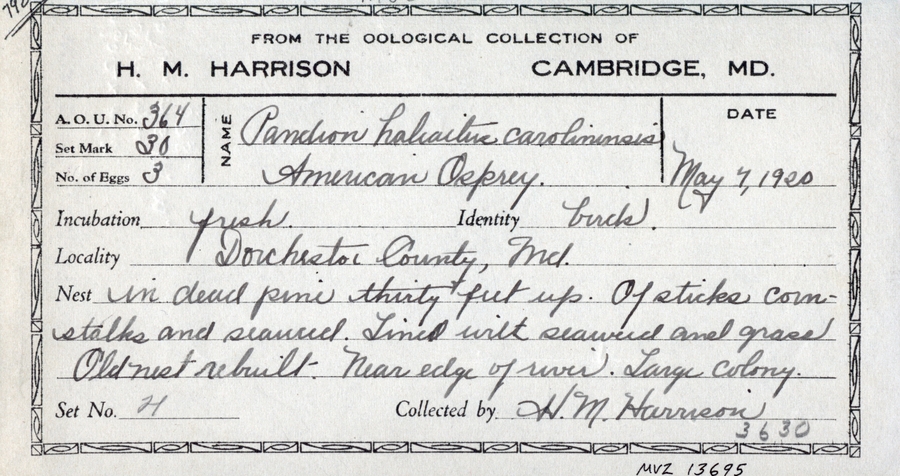 FROM THE OOLOGICAL COLLECTION OF
H. M. HARRISON CAMBRIDGE, MD.
A. O. U. No. 364
Set Mark 30
No. of Eggs 3
NAME Pandion haliaitus carolinensis
American Osprey.
DATE
May 7, 1920
Incubation fresh. Identity birds.
Locality Dorchester County, Md.
Nest in dead pine thirty feet up. Of sticks corn-
stalks and seaweed. Lined with seaweed and grass
Old nest rebuilt. Near edge of river. Large colony.
Set No. 4 Collected by H. M. Harrison
3630
MVZ 13695